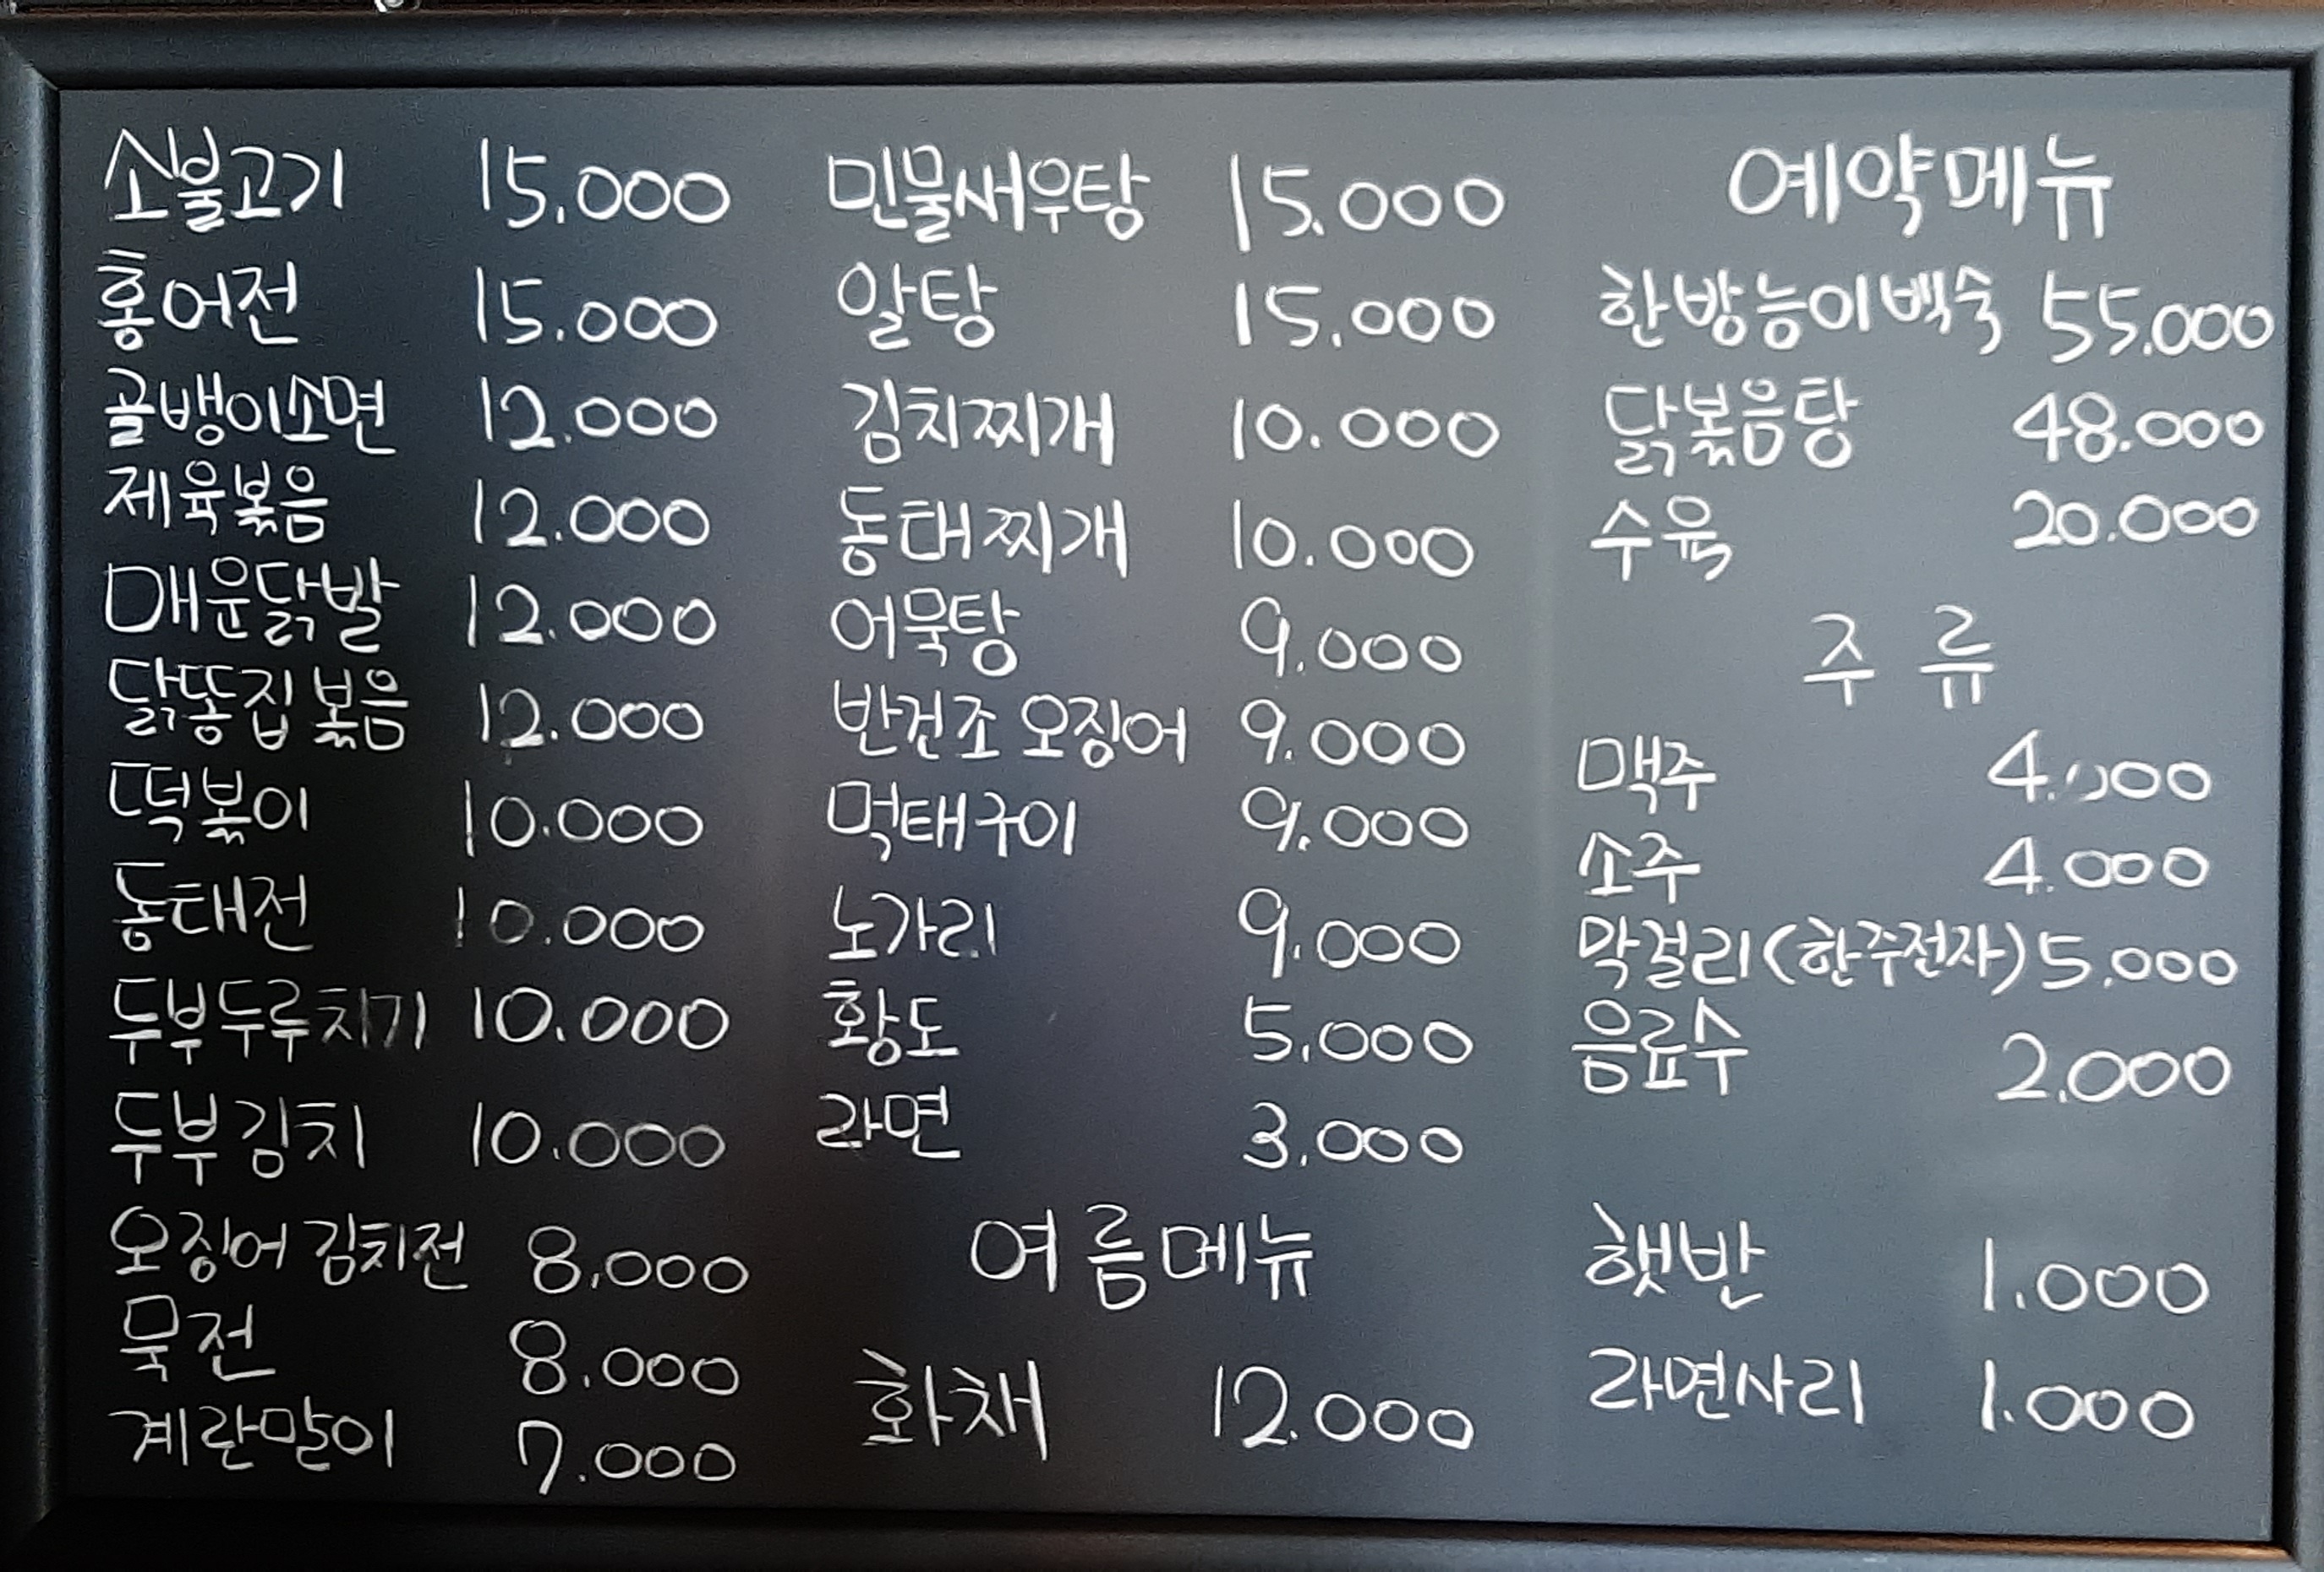 소불고기 15.000
홍어전 15.000
골뱅이소면 12.000
제육볶음 12.000
매운닭발 12.000
닭똥집볶음 12.000
떡볶이 10.000
동태전 10.000
두부두루치기 10.000
두부김치 10.000
오징어 김치전 8.000
묵전 8.000
계란말이 7.000
민물새우탕 15.000
알탕 15.000
김치찌개 10.000
동태찌개 10.000
어묵탕 9.000
반건조 오징어 9.000
먹태구이 9.000
노가리 9.000
황도 5.000
라면 3.000
여름메뉴
화채 12.000
예약메뉴
한방능이백숙 55.000
닭볶음탕 48.000
수육 20.000
주류
맥주 4.000
소주 4.000
막걸리(한주전자) 5.000
음료수 2.000
햇반 1.000
라면사리 1.000